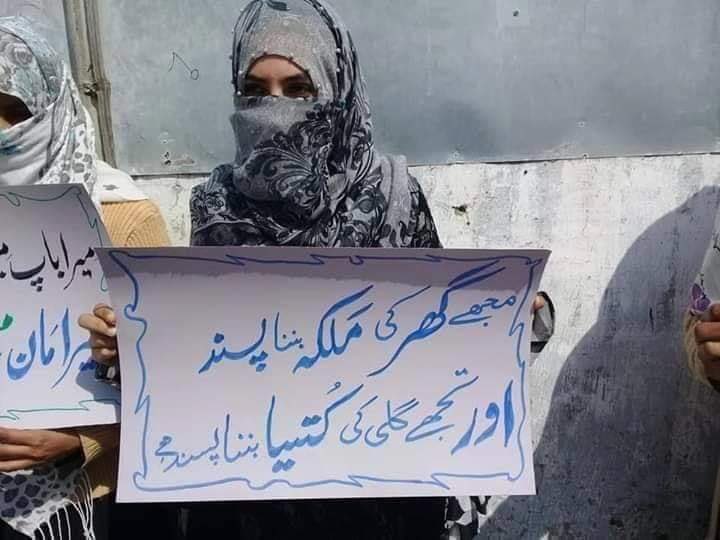 مجھے گھر کی مَلکہ بننا پسند
اور تجھے گلی کی کُتیا بننا پسند ہے
میرا باپ
میرا مان